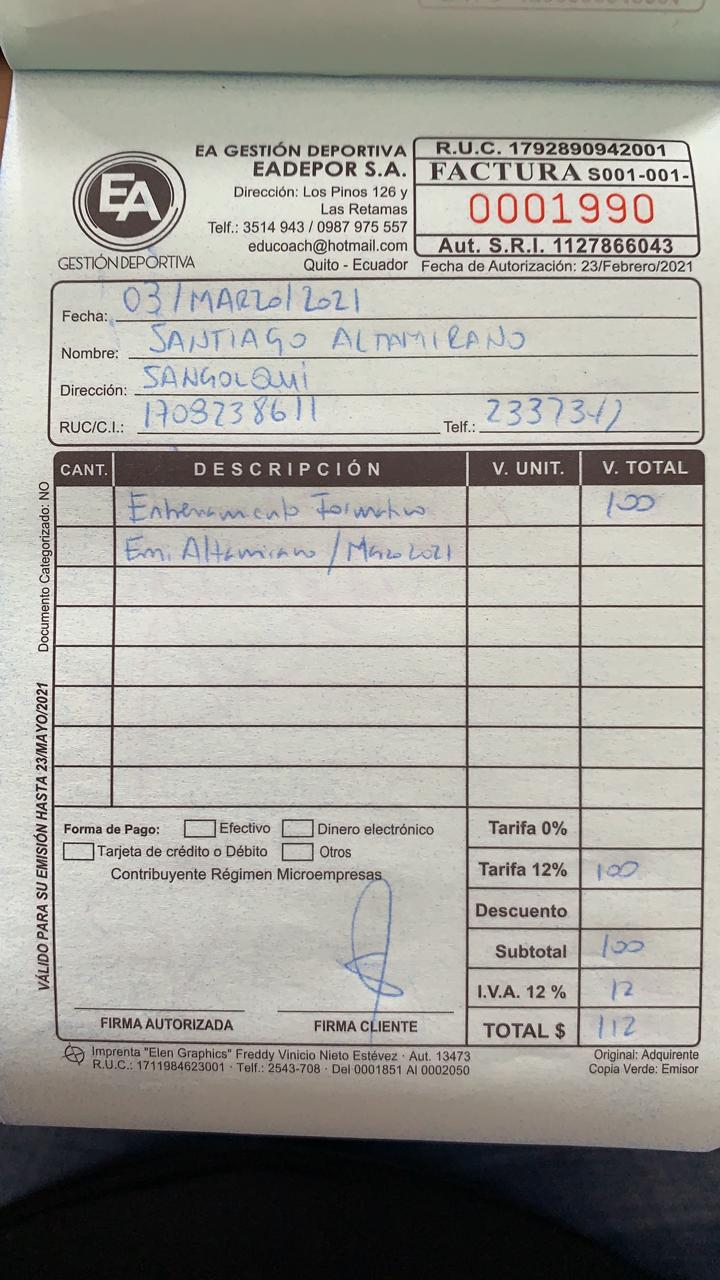 EA GESTIÓN DEPORTIVA
EADEPOR S.A.
Dirección: Los Pinos 126 y
Las Retamas
Telf.: 3514 943 / 0987 975 557
educoach@hotmail.com
Quito - Ecuador
EA
GESTIÓN DEPORTIVA
R.U.C. 1792890942001
FACTURA S001-001-
0001990
Aut. S.R.I. 1127866043
Fecha de Autorización: 23/Febrero/2021
Fecha: 03/MARZO/2021
Nombre: SANTIAGO ALTAMIRANO
Dirección: SANGOLQUI
RUC/C.I.: 1708238611 Telf.: 2337342
CANT. DESCRIPCIÓN V. UNIT. V. TOTAL
Entrenamiento Formativo 100
Emi Altamirano / Marzo 2021
Documento Categorizado: NO
VÁLIDO PARA SU EMISIÓN HASTA 23/MAYO/2021
Forma de Pago: Efectivo Dinero electrónico
Tarjeta de crédito o Débito Otros
Contribuyente Régimen Microempresas
Tarifa 0%
Tarifa 12% 100
Descuento
Subtotal 100
I.V.A. 12 % 12
TOTAL $ 112
FIRMA AUTORIZADA FIRMA CLIENTE
Imprenta "Elen Graphics" Freddy Vinicio Nieto Estévez · Aut. 13473
R.U.C.: 1711984623001 · Telf.: 2543-708 · Del 0001851 Al 0002050
Original: Adquirente
Copia Verde: Emisor